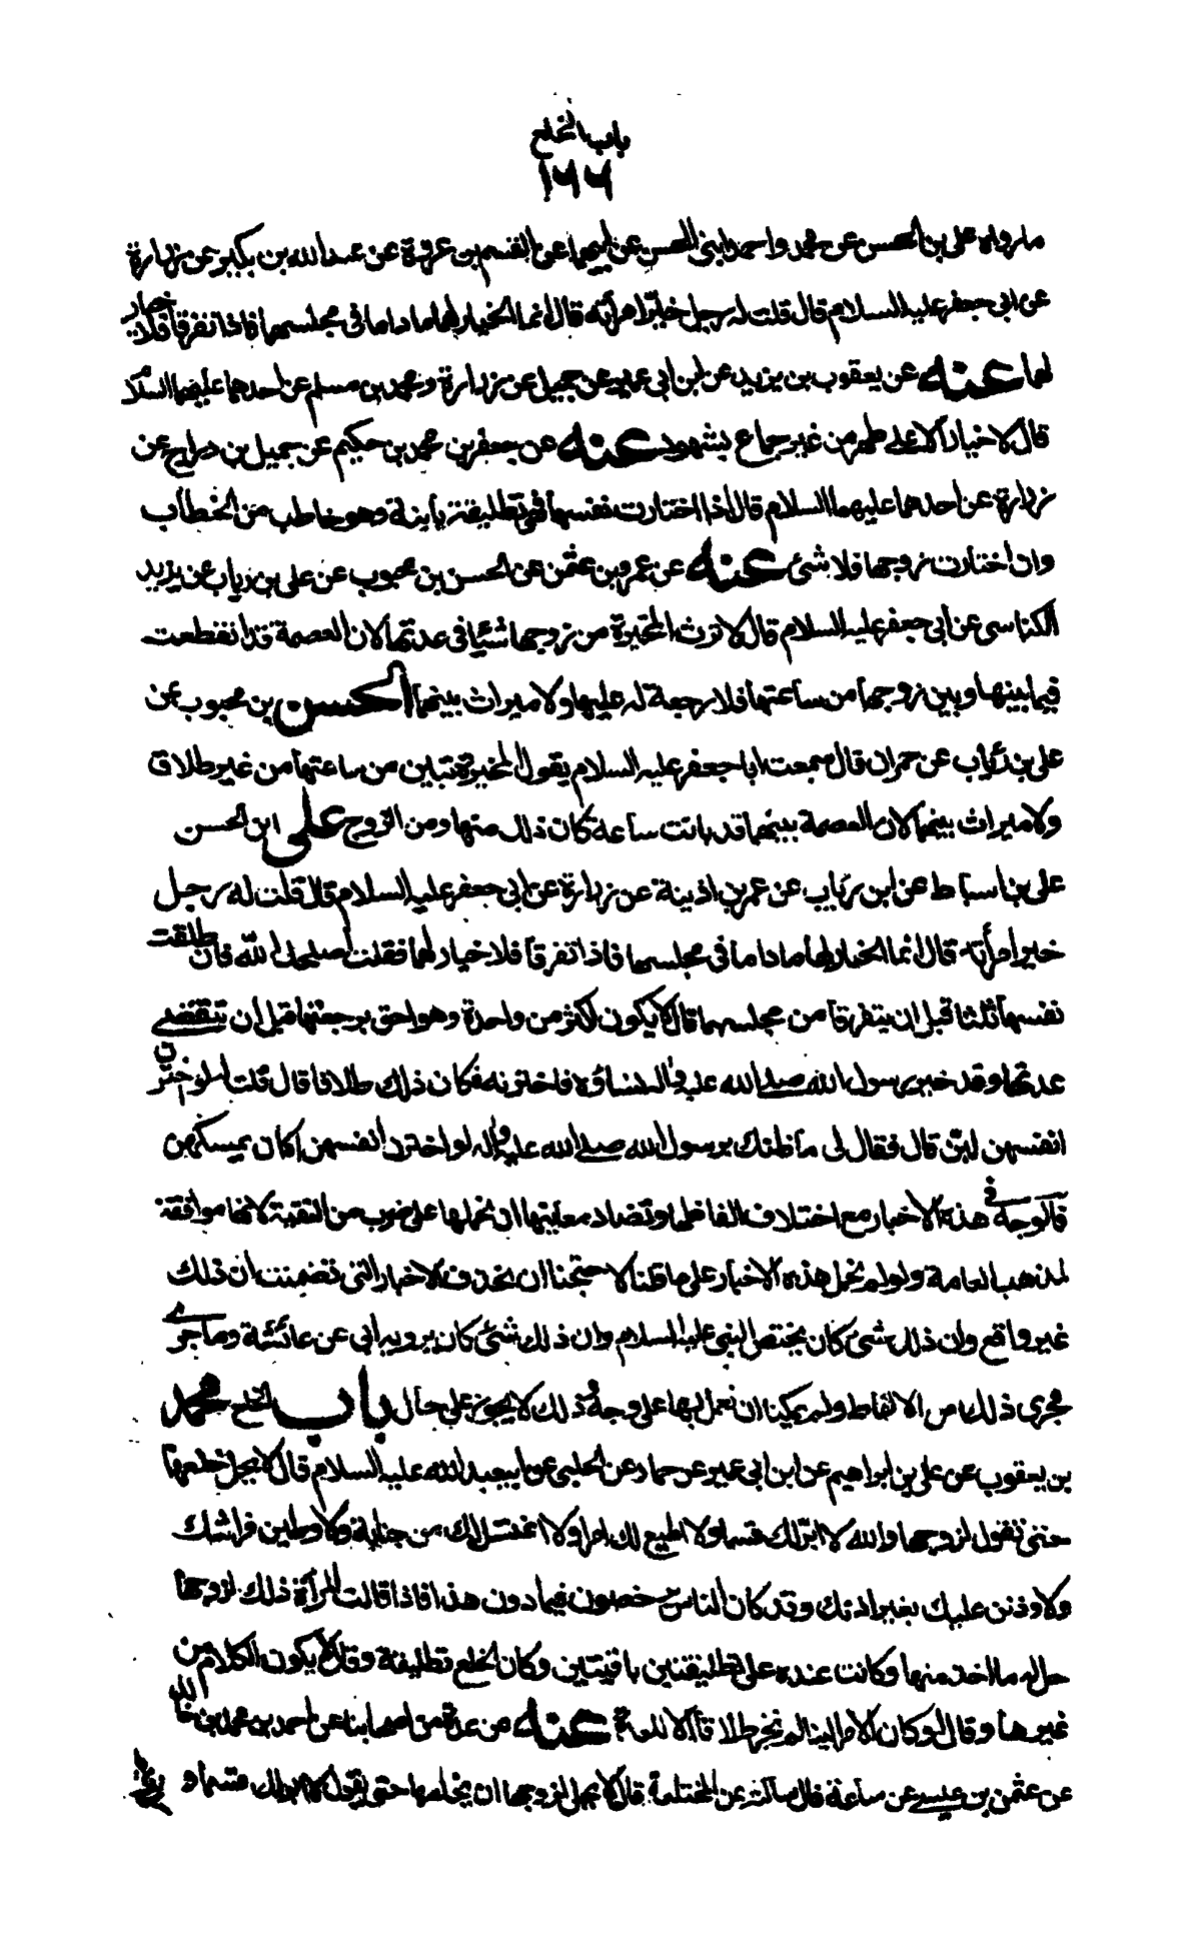 باب الخلع
١٦٦
ما رواه على بن الحسن عن محمد واحمد ابنى الحسن عن ابيهما عن القسم بن عروة عن عبد الله بن بكير عن زرارة
عن ابى جعفر عليه السلام قال قلت له رجل خيّر امرأته قال انما الخيار لهما ما داما فى مجلسهما فاذا تفرقا فلا خيار
لهما عنه عن يعقوب بن يزيد عن ابن ابى عمير عن جميل عن زرارة ومحمد بن مسلم عن احدهما عليهما السلام
قال لا خيار الا على طهر من غير جماع بشهود عنه عن جعفر بن محمد بن حكيم عن جميل بن دراج عن
زرارة عن احدهما عليهما السلام قال اذا اختارت نفسها فهى تطليقة باينة وهو خاطب من الخطاب
وان اختارت زوجها فلا شئ عنه عن عمرو بن عثمن عن الحسن بن محبوب عن على بن رياب عن يزيد
الكناسى عن ابى جعفر عليه السلام قال لا ترث المخيرة من زوجها شيئا فى عدتها لان العصمة قد انقطعت
فيما بينها وبين زوجها من ساعتها فلا رجعة له عليها ولا ميراث بينهما الحسن بن محبوب عن
على بن رئاب عن حمران قال سمعت ابا جعفر عليه السلام يقول المخيرة تبين من ساعتها من غير طلاق
ولا ميراث بينهما لان العصمة بينهما قد بانت ساعة كان ذلك منها ومن الزوج على ابن الحسن
على بن اسباط عن ابن رياب عن عمر بن اذينة عن زرارة عن ابى جعفر عليه السلام قال قلت له رجل
خير امرأته قال انما الخيار لهما ما داما فى مجلسهما فاذا تفرقا فلا خيار لهما فقلت اصلحك الله فان طلقت
نفسها ثلثا قبل ان يتفرقا من مجلسهما قال لا يكون اكثر من واحدة وهو احق برجعتها قبل ان تنقضى
عدتها وقد خير رسول الله صلى الله عليه وآله نساؤه فاخترنه فكان ذلك طلاقا قال قلت له لو اخترن
انفسهن لبنّ قال فقال لى ما ظنك برسول الله صلى الله عليه وآله لو اخترن انفسهن اكان يمسكهن
فالوجه فى هذه الاخبار مع اختلاف الفاظها وتضاد معانيها ان نحملها على ضرب من التقية لانها موافقة
لمذهب العامة ولو لم نحمل هذه الاخبار على ما قلنا لاحتجنا ان نحذف الاخبار التى تضمنت ان ذلك
غير واقع وان ذلك شئ كان يختص النبى عليه السلام وان ذلك شئ كان يرويه ابى عن عائشة وما جرى
مجرى ذلك من الالفاظ ولم يمكنا ان نعمل بها على وجه وذلك لا يجوز على حال باب الخلع محمد
بن يعقوب عن على بن ابراهيم عن ابن ابى عمير عن حماد عن الحلبى عن ابى عبد الله عليه السلام قال لا يحل خلعها
حتى تقول لزوجها والله لا ابرّ لك قسما ولا اطيع لك امرا ولا اغتسل لك من جنابة ولاوطين فراشك
ولاوذنن عليك بغير اذنك وقد كان الناس يرخصون فيما دون هذا فاذا قالت المرأة ذلك لزوجها
حل له ما اخذ منها وكانت عنده على تطليقتين باقيتين وكان الخلع تطليقة وقال لا يكون الكلام من
غيرها وقال لو كان الامر الينا لم نجز طلاقا الا للعدة عنه عن عدة من اصحابنا عن احمد بن محمد بن خالد
عن عثمن بن عيسى عن سماعة قال سالته عن المختلعة قال لا يحل لزوجها ان يخلعها حتى يقول لا ابر لك قسما و